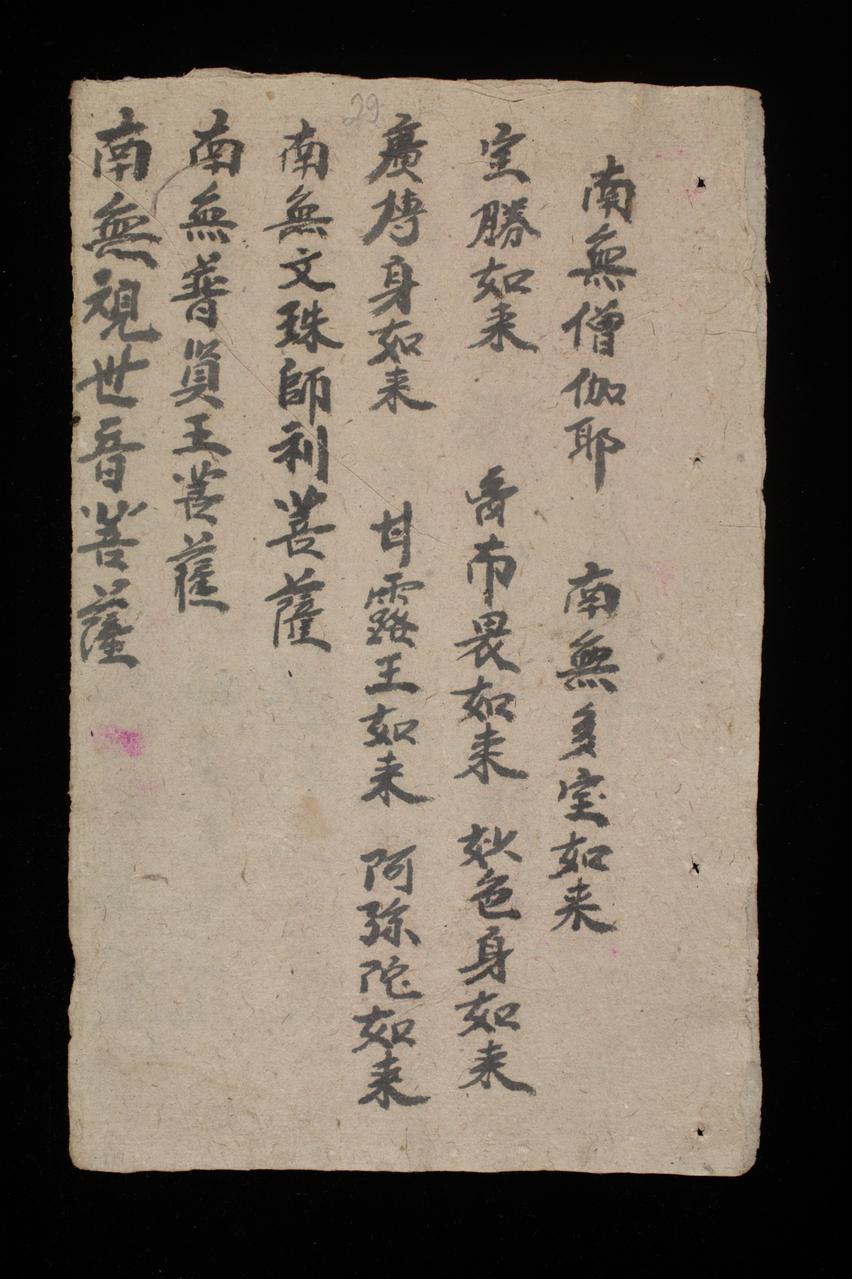 29
南無僧伽耶 南無多宝如来
宝勝如来 布畏如来 妙色身如来
廣博身如来 甘露王如来 阿弥陀如来
南無文珠師利菩薩
南無普賢王菩薩
南無視世音菩薩